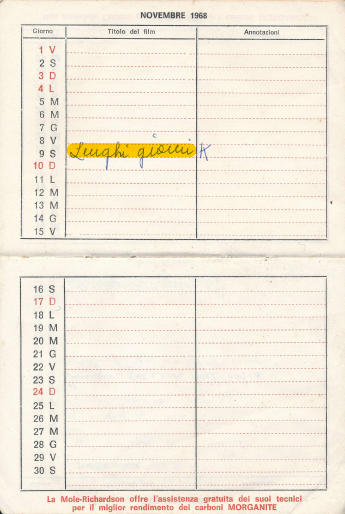 NOVEMBRE 1968
Giorno Titolo del film Annotazioni
1 V
2 S
3 D
4 L
5 M
6 M
7 G
8 V
9 S Lunghi giorni
10 D
11 L
12 M
13 M
14 G
15 V
16 S
17 D
18 L
19 M
20 M
21 G
22 V
23 S
24 D
25 L
26 M
27 M
28 G
29 V
30 S
La Mole-Richardson offre l'assistenza gratuita dei suoi tecnici
per il miglior rendimento dei carboni MORGANITE